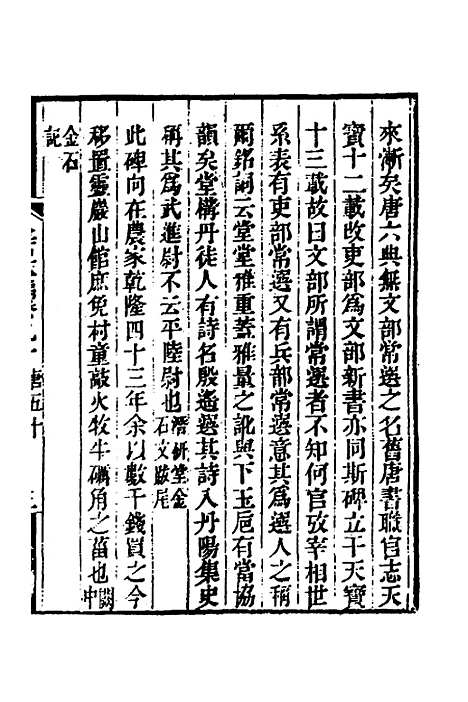 來漸矣唐六典無文部常選之名舊唐書職官志天
寶十二載改吏部爲文部新書亦同斯碑立于天寶
十三載故曰文部所謂常選者不知何官攷宰相世
系表有吏部常選又有兵部常選意其爲選人之稱
爾銘詞云堂堂雅重蓋雅量之訛與下玉巵有當協
韻矣堂構丹徒人有詩名殷遙選其詩入丹陽集史
稱其爲武進尉不云平陸尉也潛研堂金石文跋尾
此碑向在農家乾隆四十三年余以數千錢買之今
移置靈巖山館庶免村童敲火牧牛礪角之菑也關中
金石
記